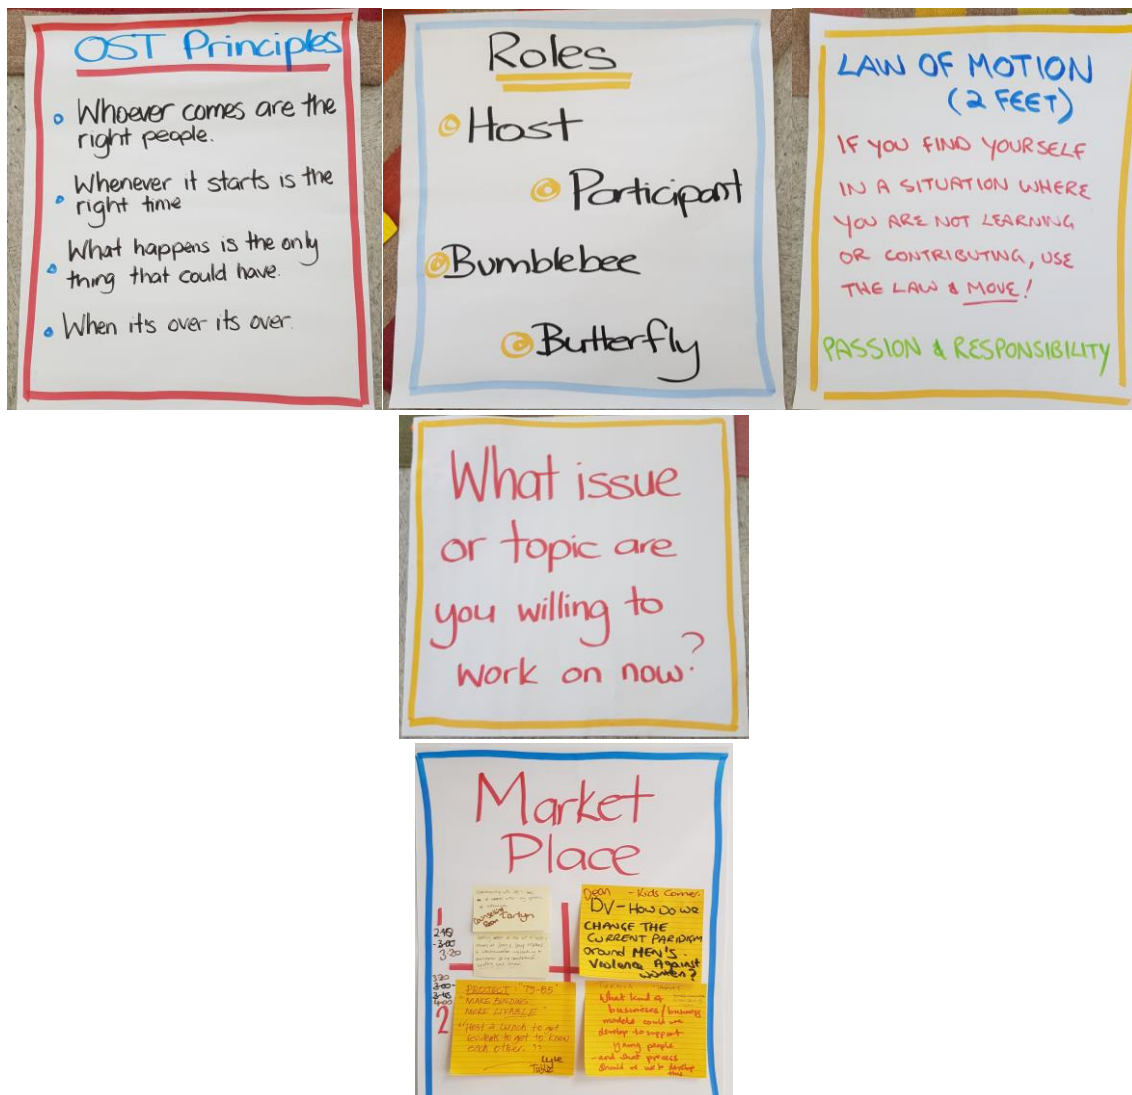 OST Principles
Whoever comes are the
right people.
Whenever it starts is the
right time
What happens is the only
thing that could have.
When it's over its over.
Roles
Host
Participant
Bumblebee
Butterfly
LAW OF MOTION
(2 FEET)
IF YOU FIND YOURSELF
IN A SITUATION WHERE
YOU ARE NOT LEARNING
OR CONTRIBUTING, USE
THE LAW & MOVE!
PASSION & RESPONSIBILITY
What issue
or topic are
you willing to
work on now?
Market
Place
1
3:20
Counselling
Room Carlyn
Dean - Kids Corner.
DV - HOW DO WE
CHANGE THE
CURRENT PARIDIGM
around MEN'S
Violence Against
women?
3:20
2
PROJECT: "79-85"
"MAKE BUILDING
MORE LIVABLE"
"Host a lunch to get
residents to get to know
each other."
Lyle
Table
What kind of
businesses/business
models could we
develop to support
young people
- and what process
should we use to develop
this